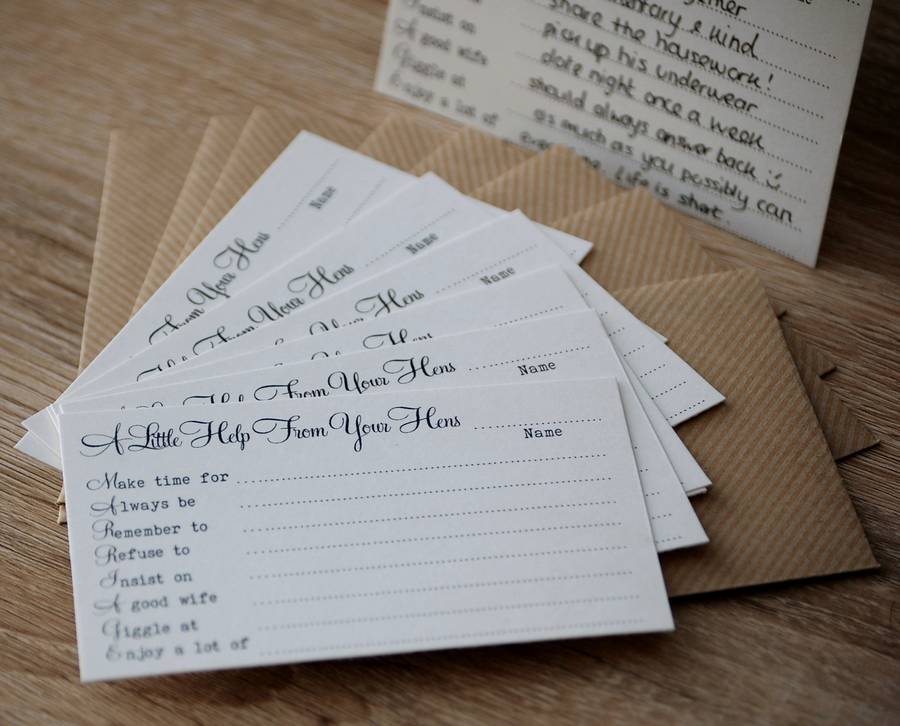 mentary & kind
share the housework!
Insist on pick up his underwear
A good wife date night once a week
Giggle at should always answer back
Enjoy a lot of as much as you possibly can
Life is short.
Name
From Your Hens
Name
From Your Hens
Name
Your Hens
Name
A Little Help From Your Hens
Name
A Little Help From Your Hens
Name
Make time for
Always be
Remember to
Refuse to
Insist on
A good wife
Giggle at
Enjoy a lot of